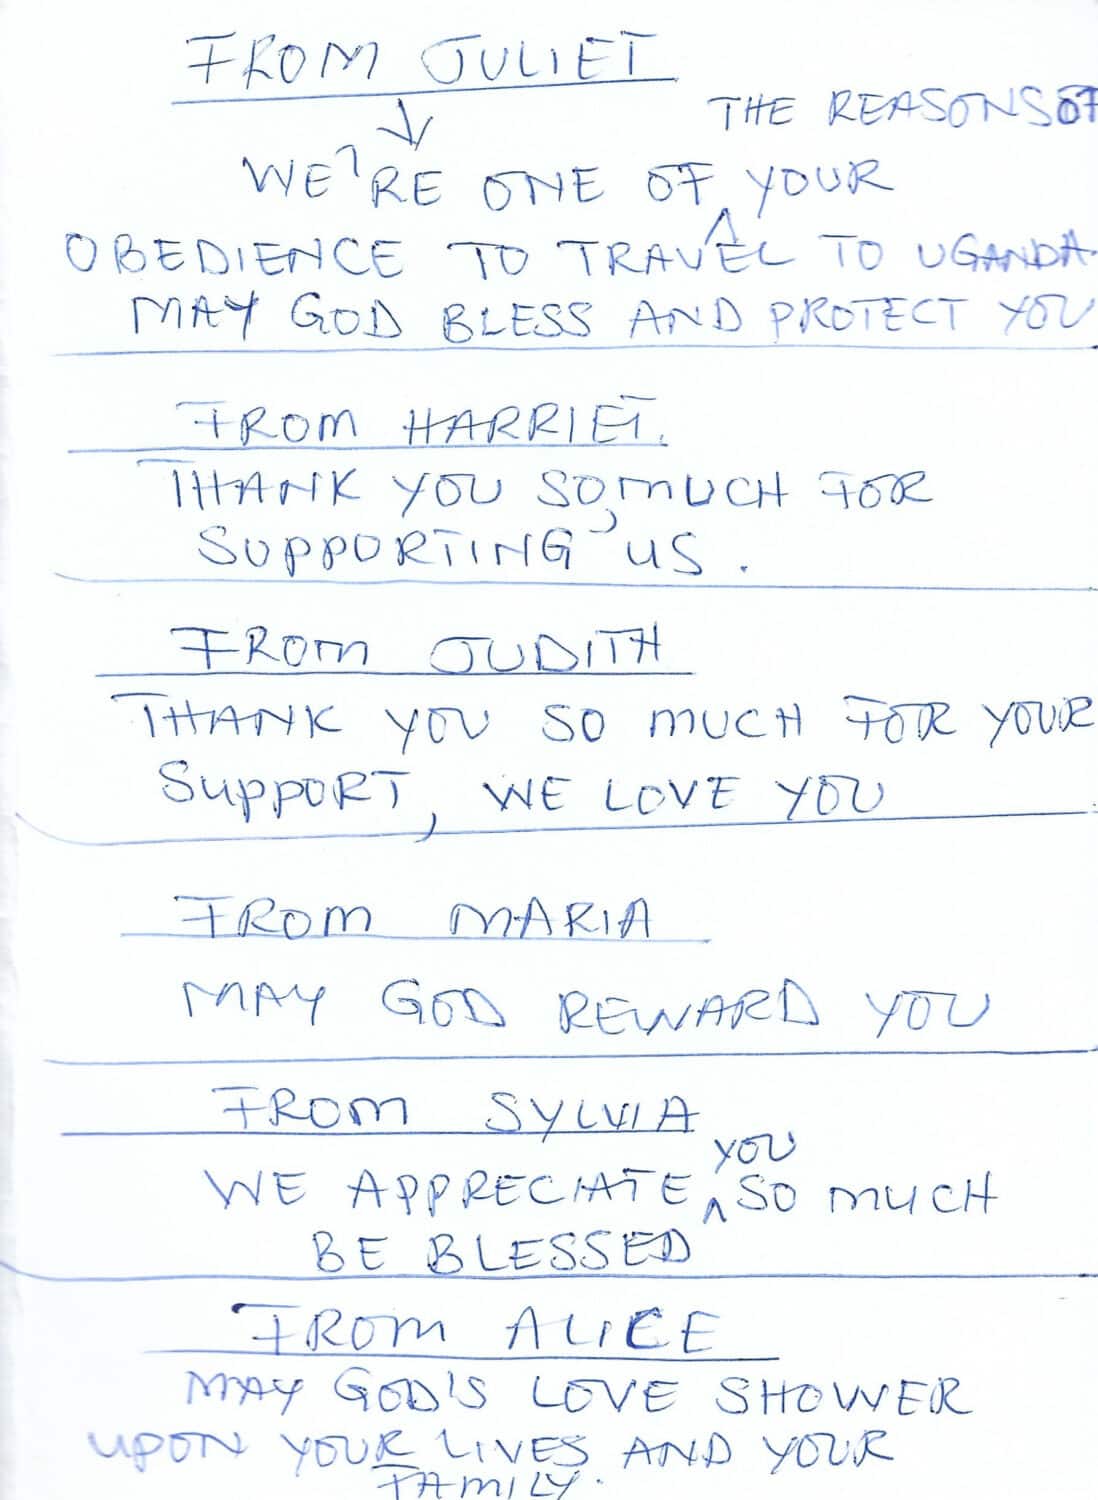 FROM JULIET
THE REASONS OF
WE'RE ONE OF YOUR
OBEDIENCE TO TRAVEL TO UGANDA.
MAY GOD BLESS AND PROTECT YOU
FROM HARRIET.
THANK YOU SO, MUCH FOR
SUPPORTING US.
FROM JUDITH
THANK YOU SO MUCH FOR YOUR
SUPPORT, WE LOVE YOU
FROM MARIA
MAY GOD REWARD YOU
FROM SYLVIA
YOU
WE APPRECIATE SO MUCH
BE BLESSED
FROM ALICE
MAY GOD'S LOVE SHOWER
UPON YOUR LIVES AND YOUR
FAMILY.